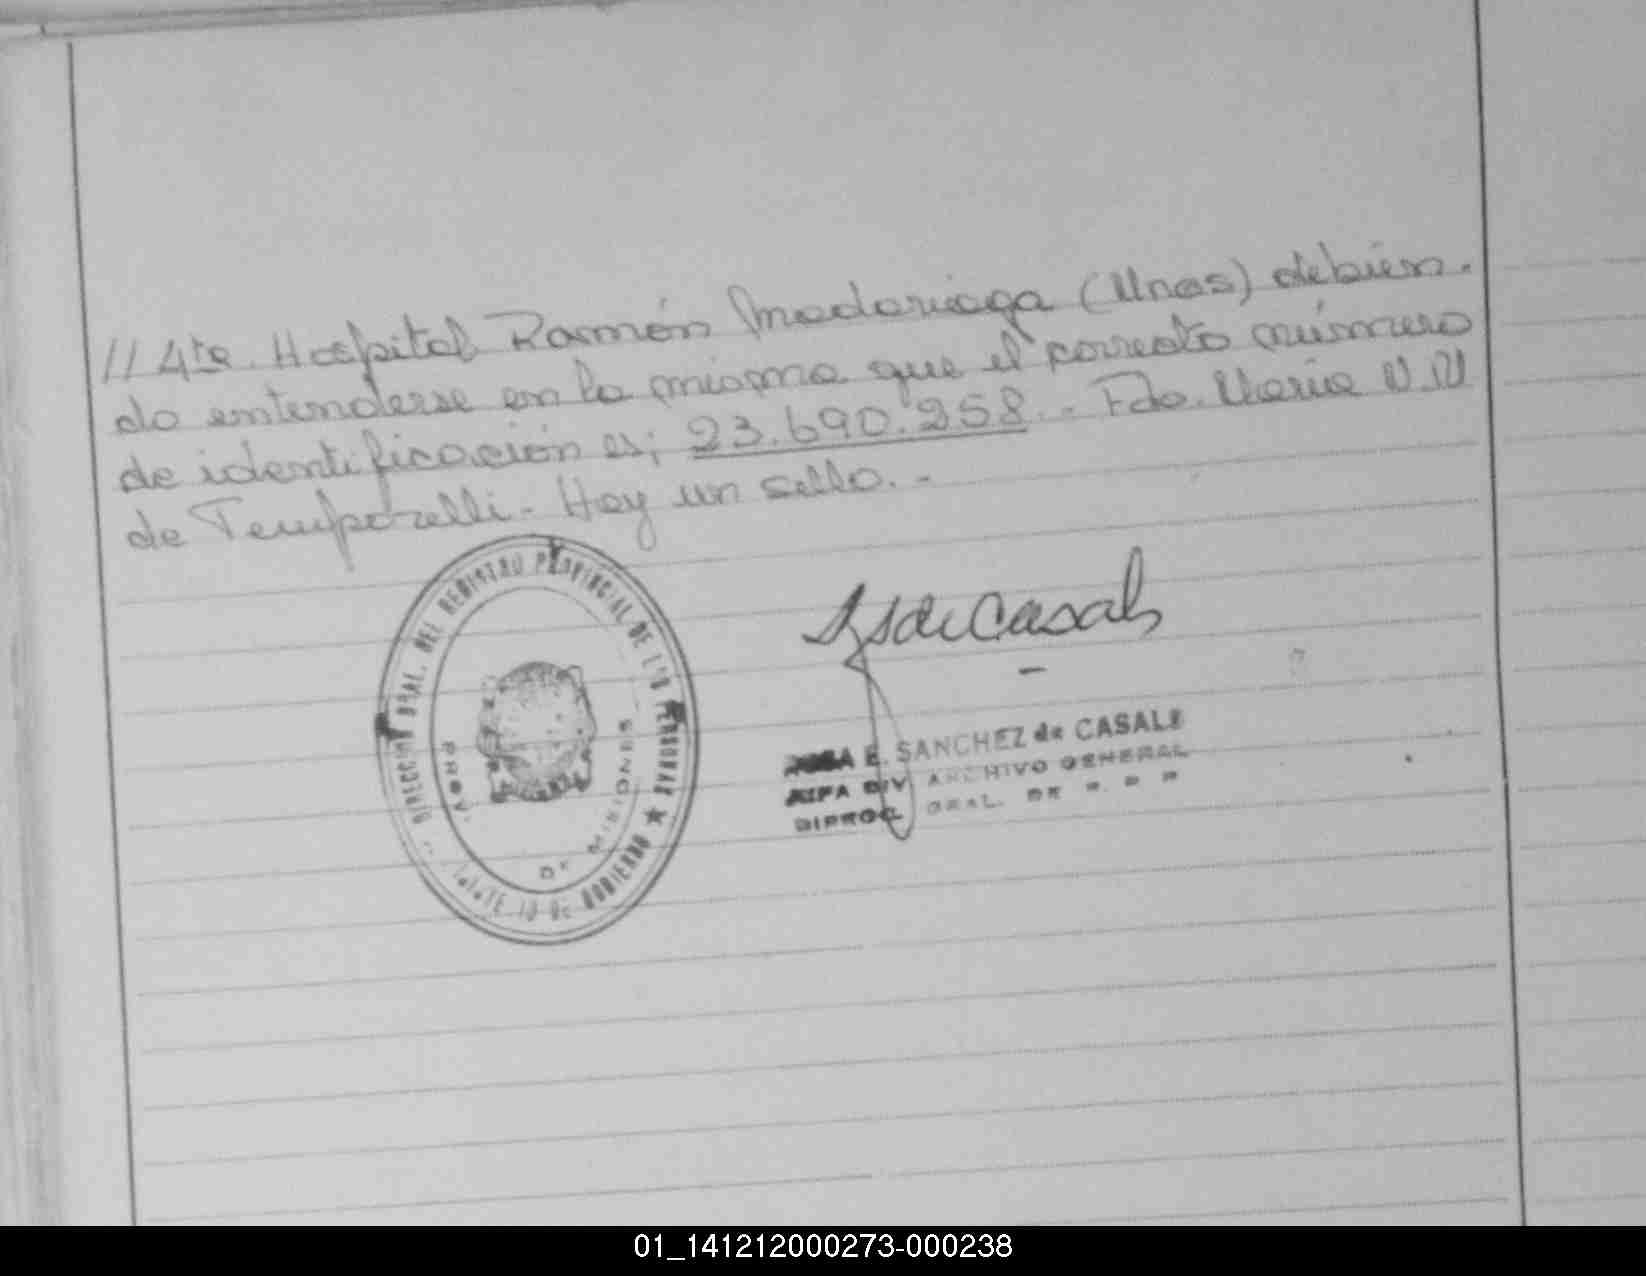 // 4te. Hospital Ramón Madariaga (Mnes) debien-
do entenderse en la misma que el correcto número
de identificación es; 23.690.258.- Fdo. Maria N.N
de Temporelli.- Hay un sello.-
DIRECCION GRAL. DEL REGISTRO PROVINCIAL DE LAS PERSONAS ★
DE GOBIERNO
PROV. DE MISIONES
de Casals
E. SANCHEZ de CASALS
JEFA DIV. ARCHIVO GENERAL
GRAL. DE R. D P
01_141212000273-000238